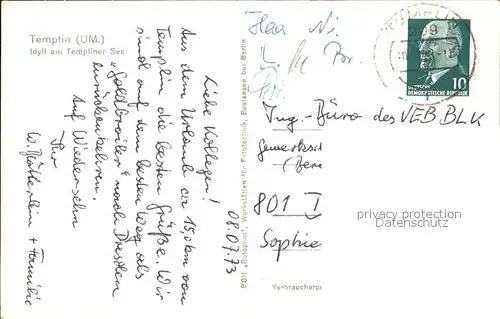 Templin (UM.)
Idyll am Templiner See
08.07.73
Liebe Kollegen!
Aus dem Urlaub ca 150km von
Templin die besten Grüße. Wir
sind auf dem besten Weg als
"Goldbroiler" nach Dresden
zurückzukehren.
Auf Wiedersehn
Ihr
W. + Familie
PGH „Rotophot", Werkstätten für Fototechnik, Bestensee bei Berlin
Herr
DEMOKRATISCHE REPUBLIK
10
Ing.-Büro des VEB BLK
Gewerkssc
(Bere
801 I
Sophie
Verbraucherpr
privacy protection
Datenschutz